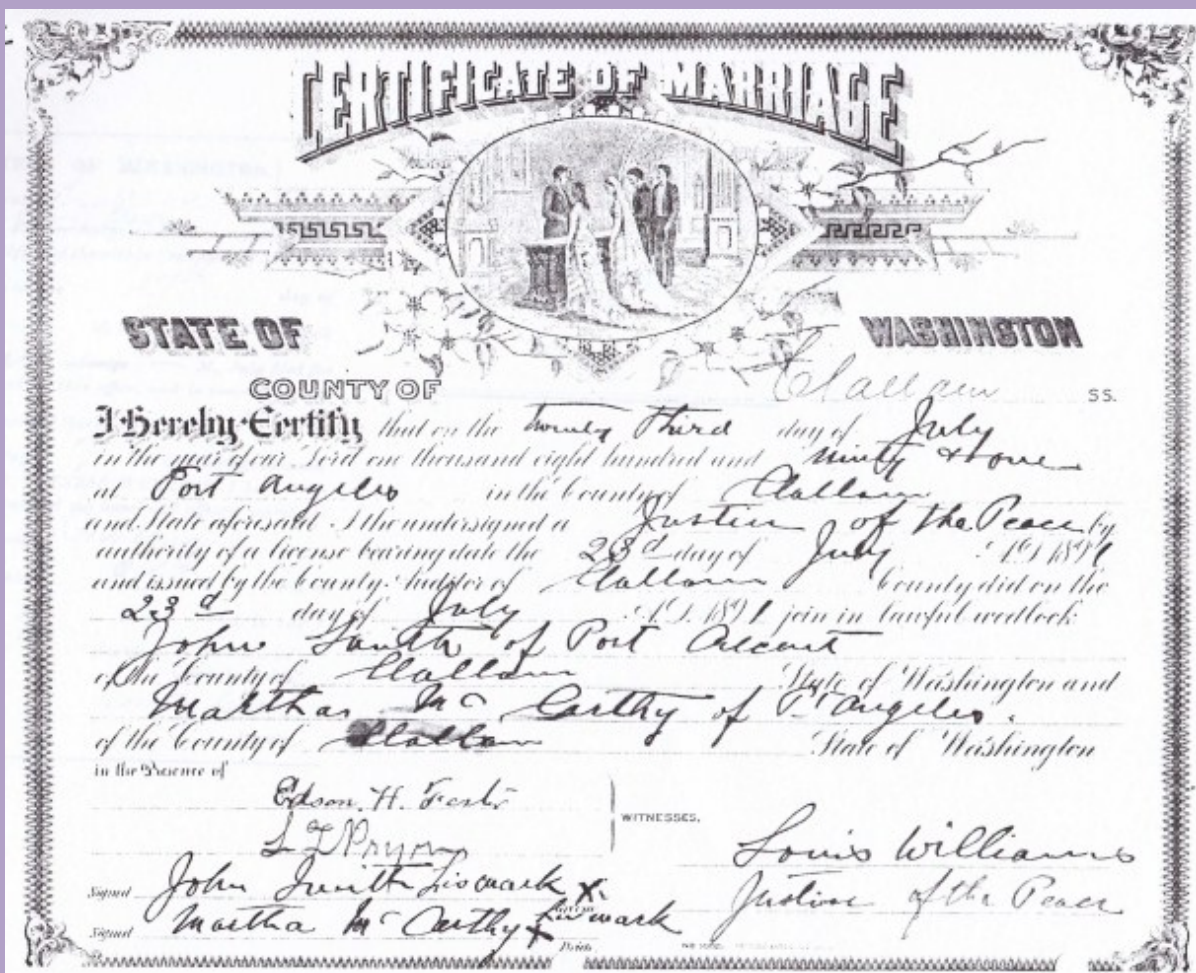 CERTIFICATE OF MARRIAGE
STATE OF WASHINGTON
COUNTY OF Clallam SS.
I Hereby Certify that on the twenty third day of July
in the year of our Lord one thousand eight hundred and ninety & one
at Port Angeles in the County of Clallam
and State aforesaid I the undersigned a Justice of the Peace by
authority of a license bearing date the 23d day of July A.D. 1891
and issued by the County Auditor of Clallam County did on the
23d day of July A.D. 1891 join in lawful wedlock
John Smith of Port
of the County of Clallam State of Washington and
Martha Mc Carthy of Pt Angeles.
of the County of Clallam State of Washington
in the Presence of
Edson. H.
WITNESSES.
Louis Williams
Justice of the Peace
Signed John Smith his mark X
Groom
Signed Martha Mc Carthy X her mark
Bride